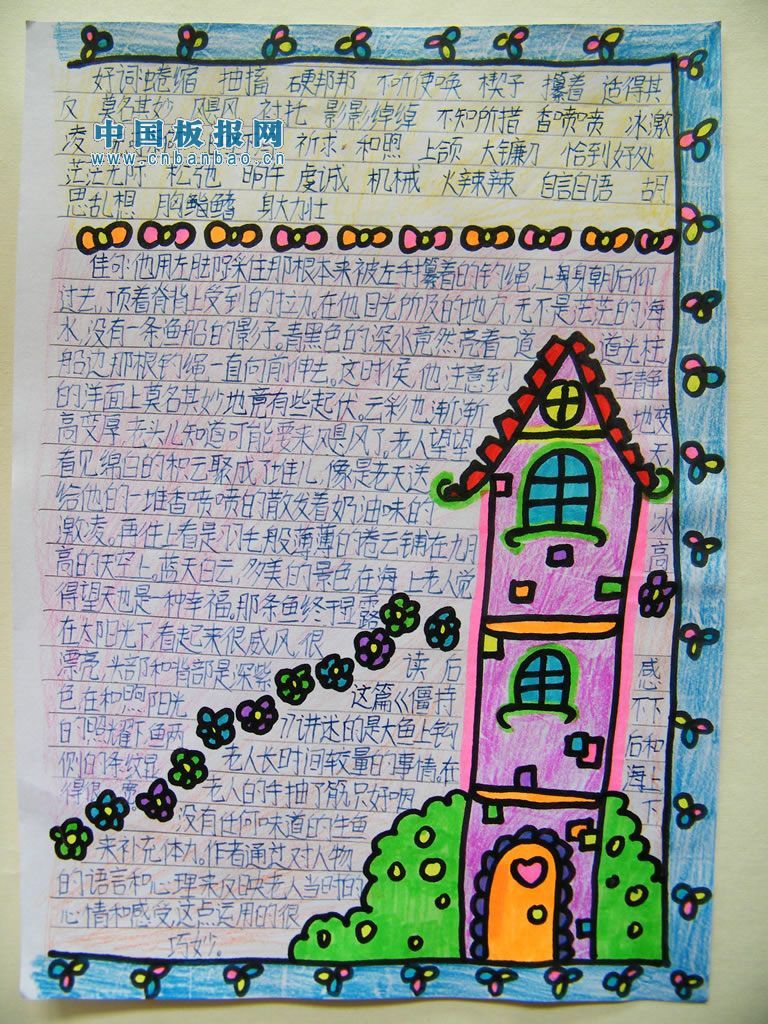 好词:蜷缩 抽搐 硬邦邦 不听使唤 楔子 攥着 适得其
反 莫名其妙 飓风 衬托 影影绰绰 不知所措 香喷喷 冰激
凌 祈求 和煦 上颌 大镰刀 恰到好处
中国板报网
www.cnbanbao.cn
茫茫无际 松弛 晌午 虔诚 机械 火辣辣 自言自语 胡
思乱想 胸鳍 身大力壮
佳句:他用左脚踩住那根本来被左手攥着的钓绳,上身朝后仰
过去,顶着脊背上受到的拉力。在他目光所及的地方,无不是茫茫的海
水,没有一条渔船的影子。青黑色的深水竟然亮着一道 道光柱
船边那根钓绳一直向前伸去。这时侯,他注意到 平静
的洋面上莫名其妙地竟有些起伏。云彩也渐渐 地变
高变厚。老头儿知道可能要来飓风了。老人望望 天
看见绵白的积云聚成了堆儿,像是老天送
给他的一堆香喷喷的散发着奶油味的 冰
激凌。再往上看是羽毛般薄薄的卷云铺在九月 高
高的天空上。蓝天白云,多美的景色在海上老人觉
得望天也是一种幸福。那条鱼终于显露
在太阳光下,看起来很威风,很
漂亮,头部和背部是深紫
色在和煦阳光
的照耀下,鱼两
侧的条纹显
得很
读后感
这篇《僵持不下
》讲述的是大鱼上钩后和
老人长时间较量的事情,在海上
老人的手抽了筋,只好咽下
没有任何味道的生鱼
来补充体力。作者通过对人物
的语言和心理来反映老人当时的
心情和感受,这点运用的很
巧妙。